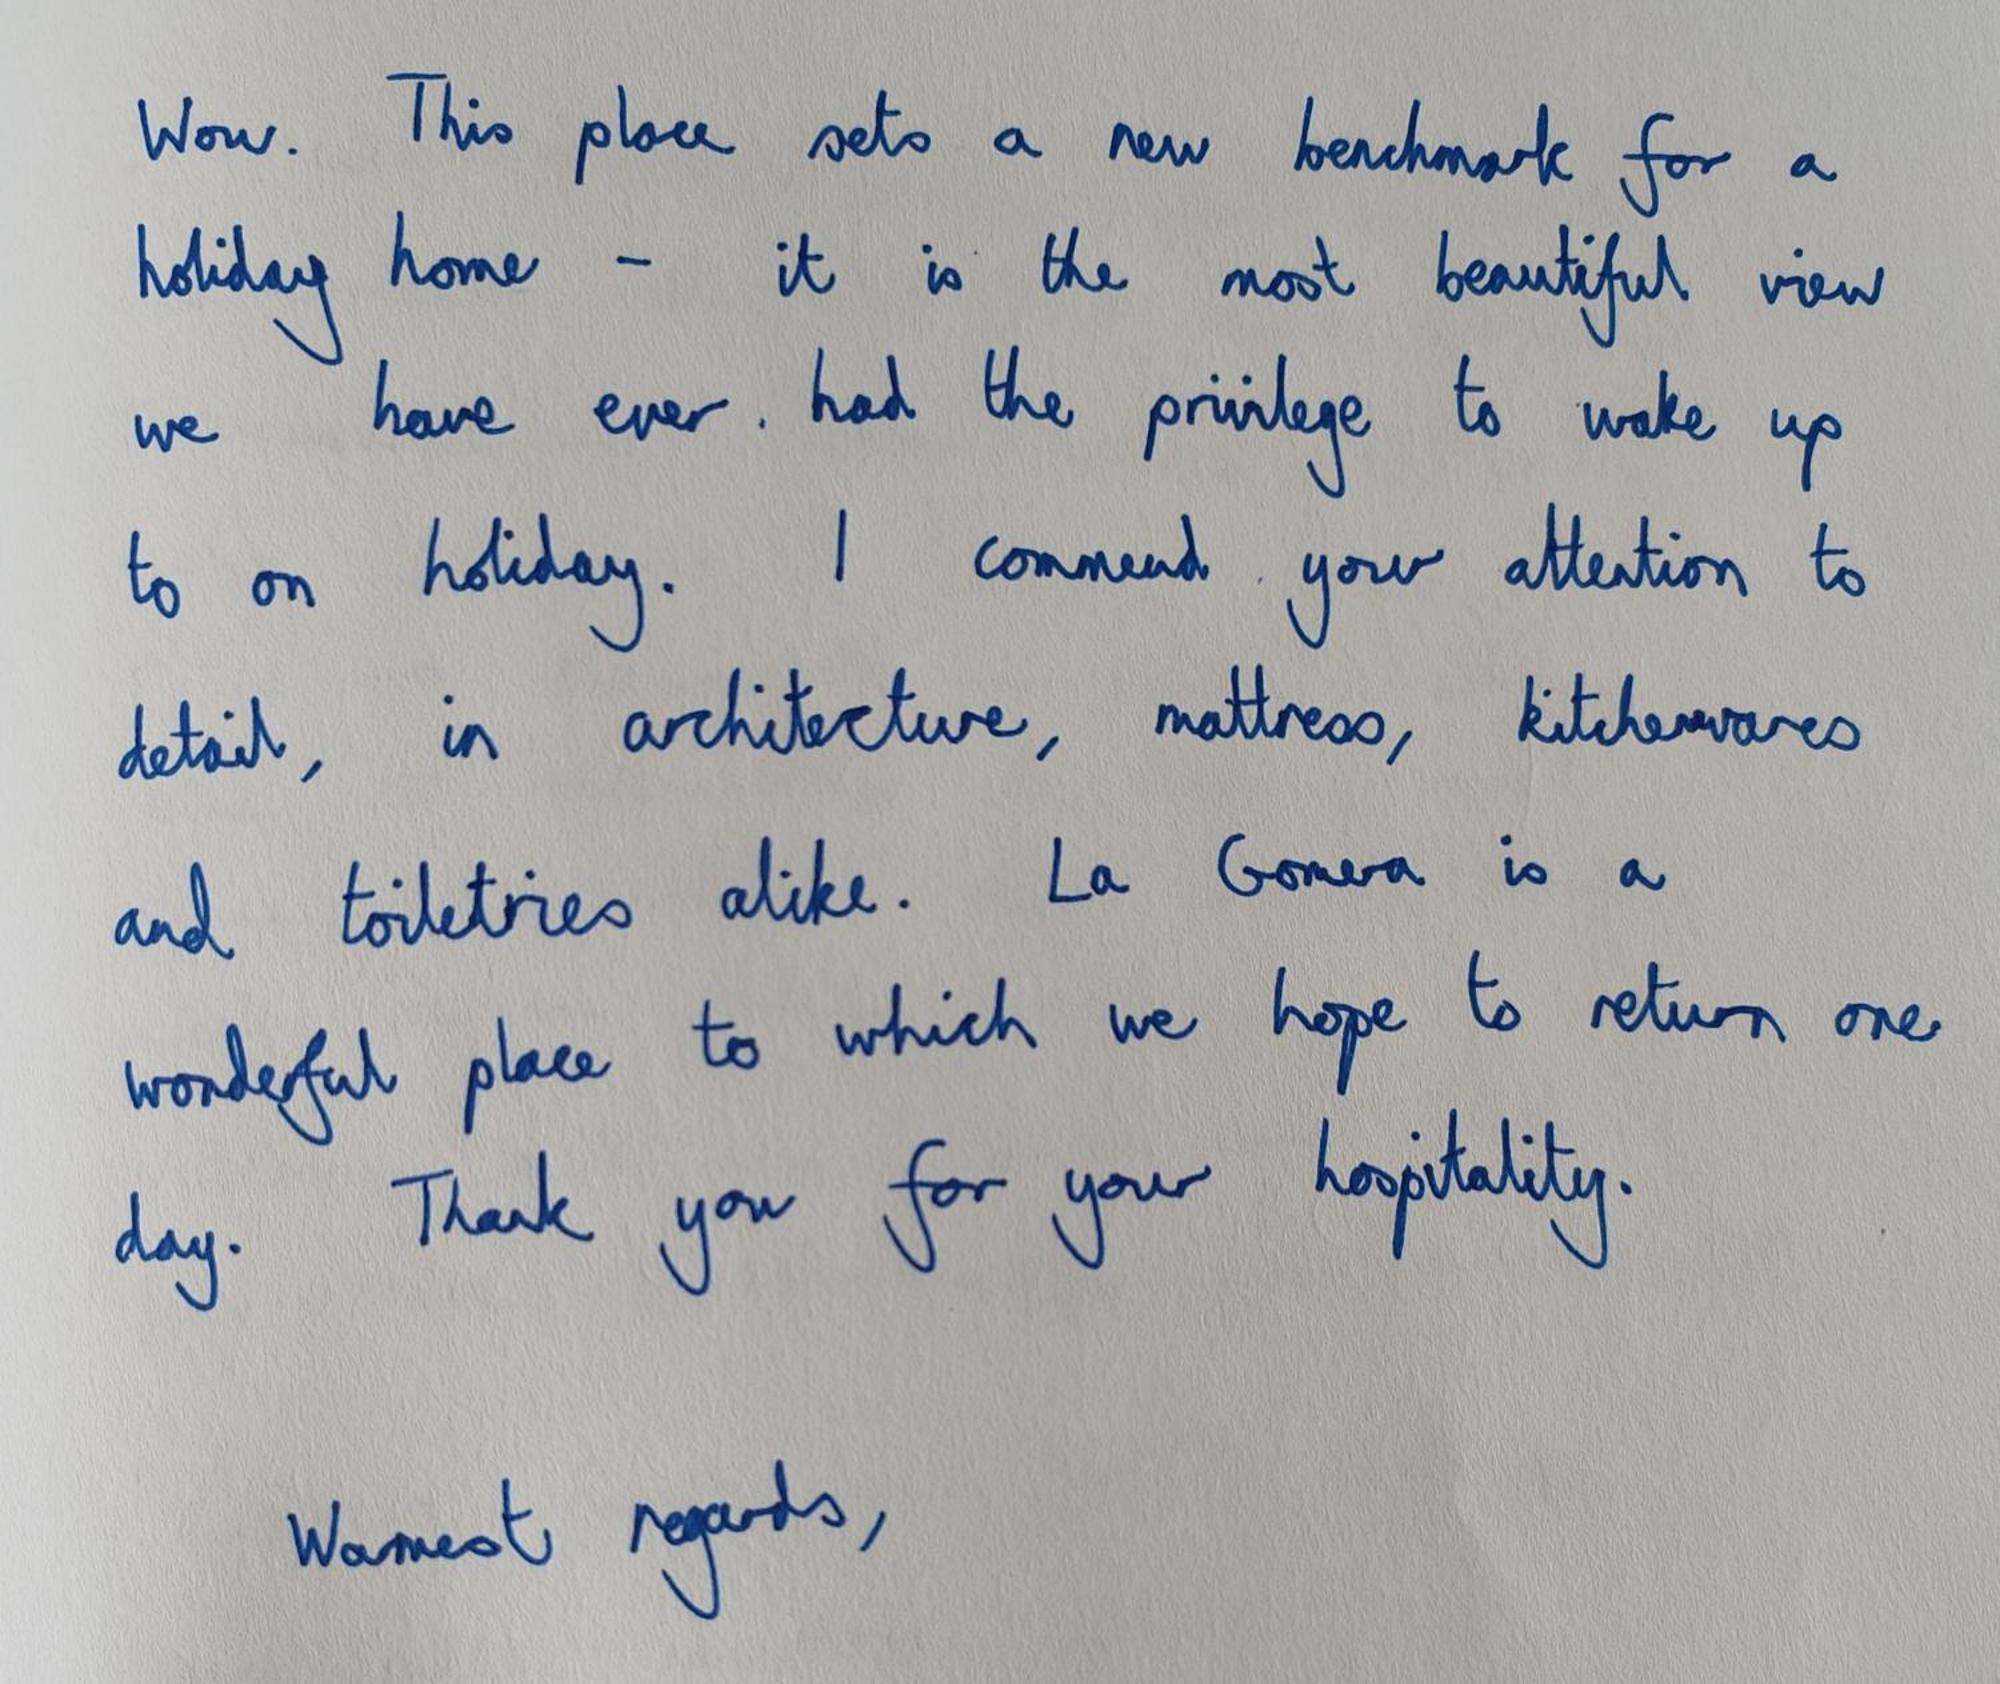 Wow. This place sets a new benchmark for a
holiday home - it is the most beautiful view
we have ever had the privilege to wake up
to on holiday. I commend your attention to
detail, in architecture, mattress, kitchenwares
and toiletries alike. La Gomera is a
wonderful place to which we hope to return one
day. Thank you for your hospitality.
Warmest regards,